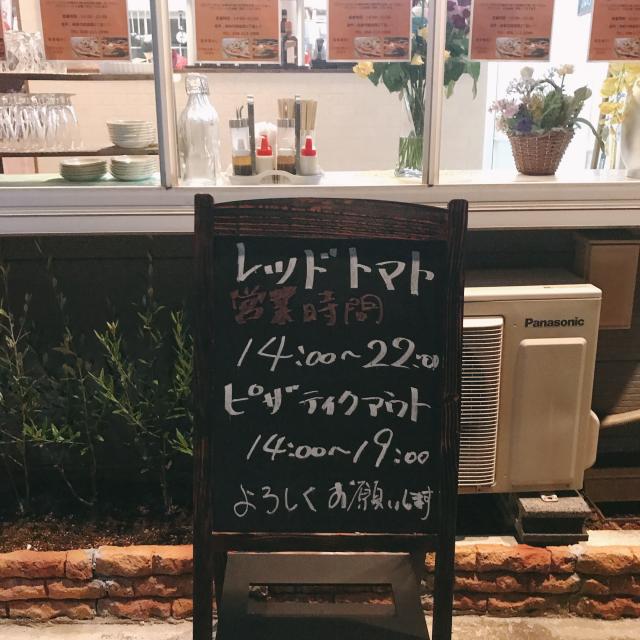 レッドトマト
営業時間
14:00〜22:00
ピザテイクアウト
14:00〜19:00
よろしくお願いします
Panasonic